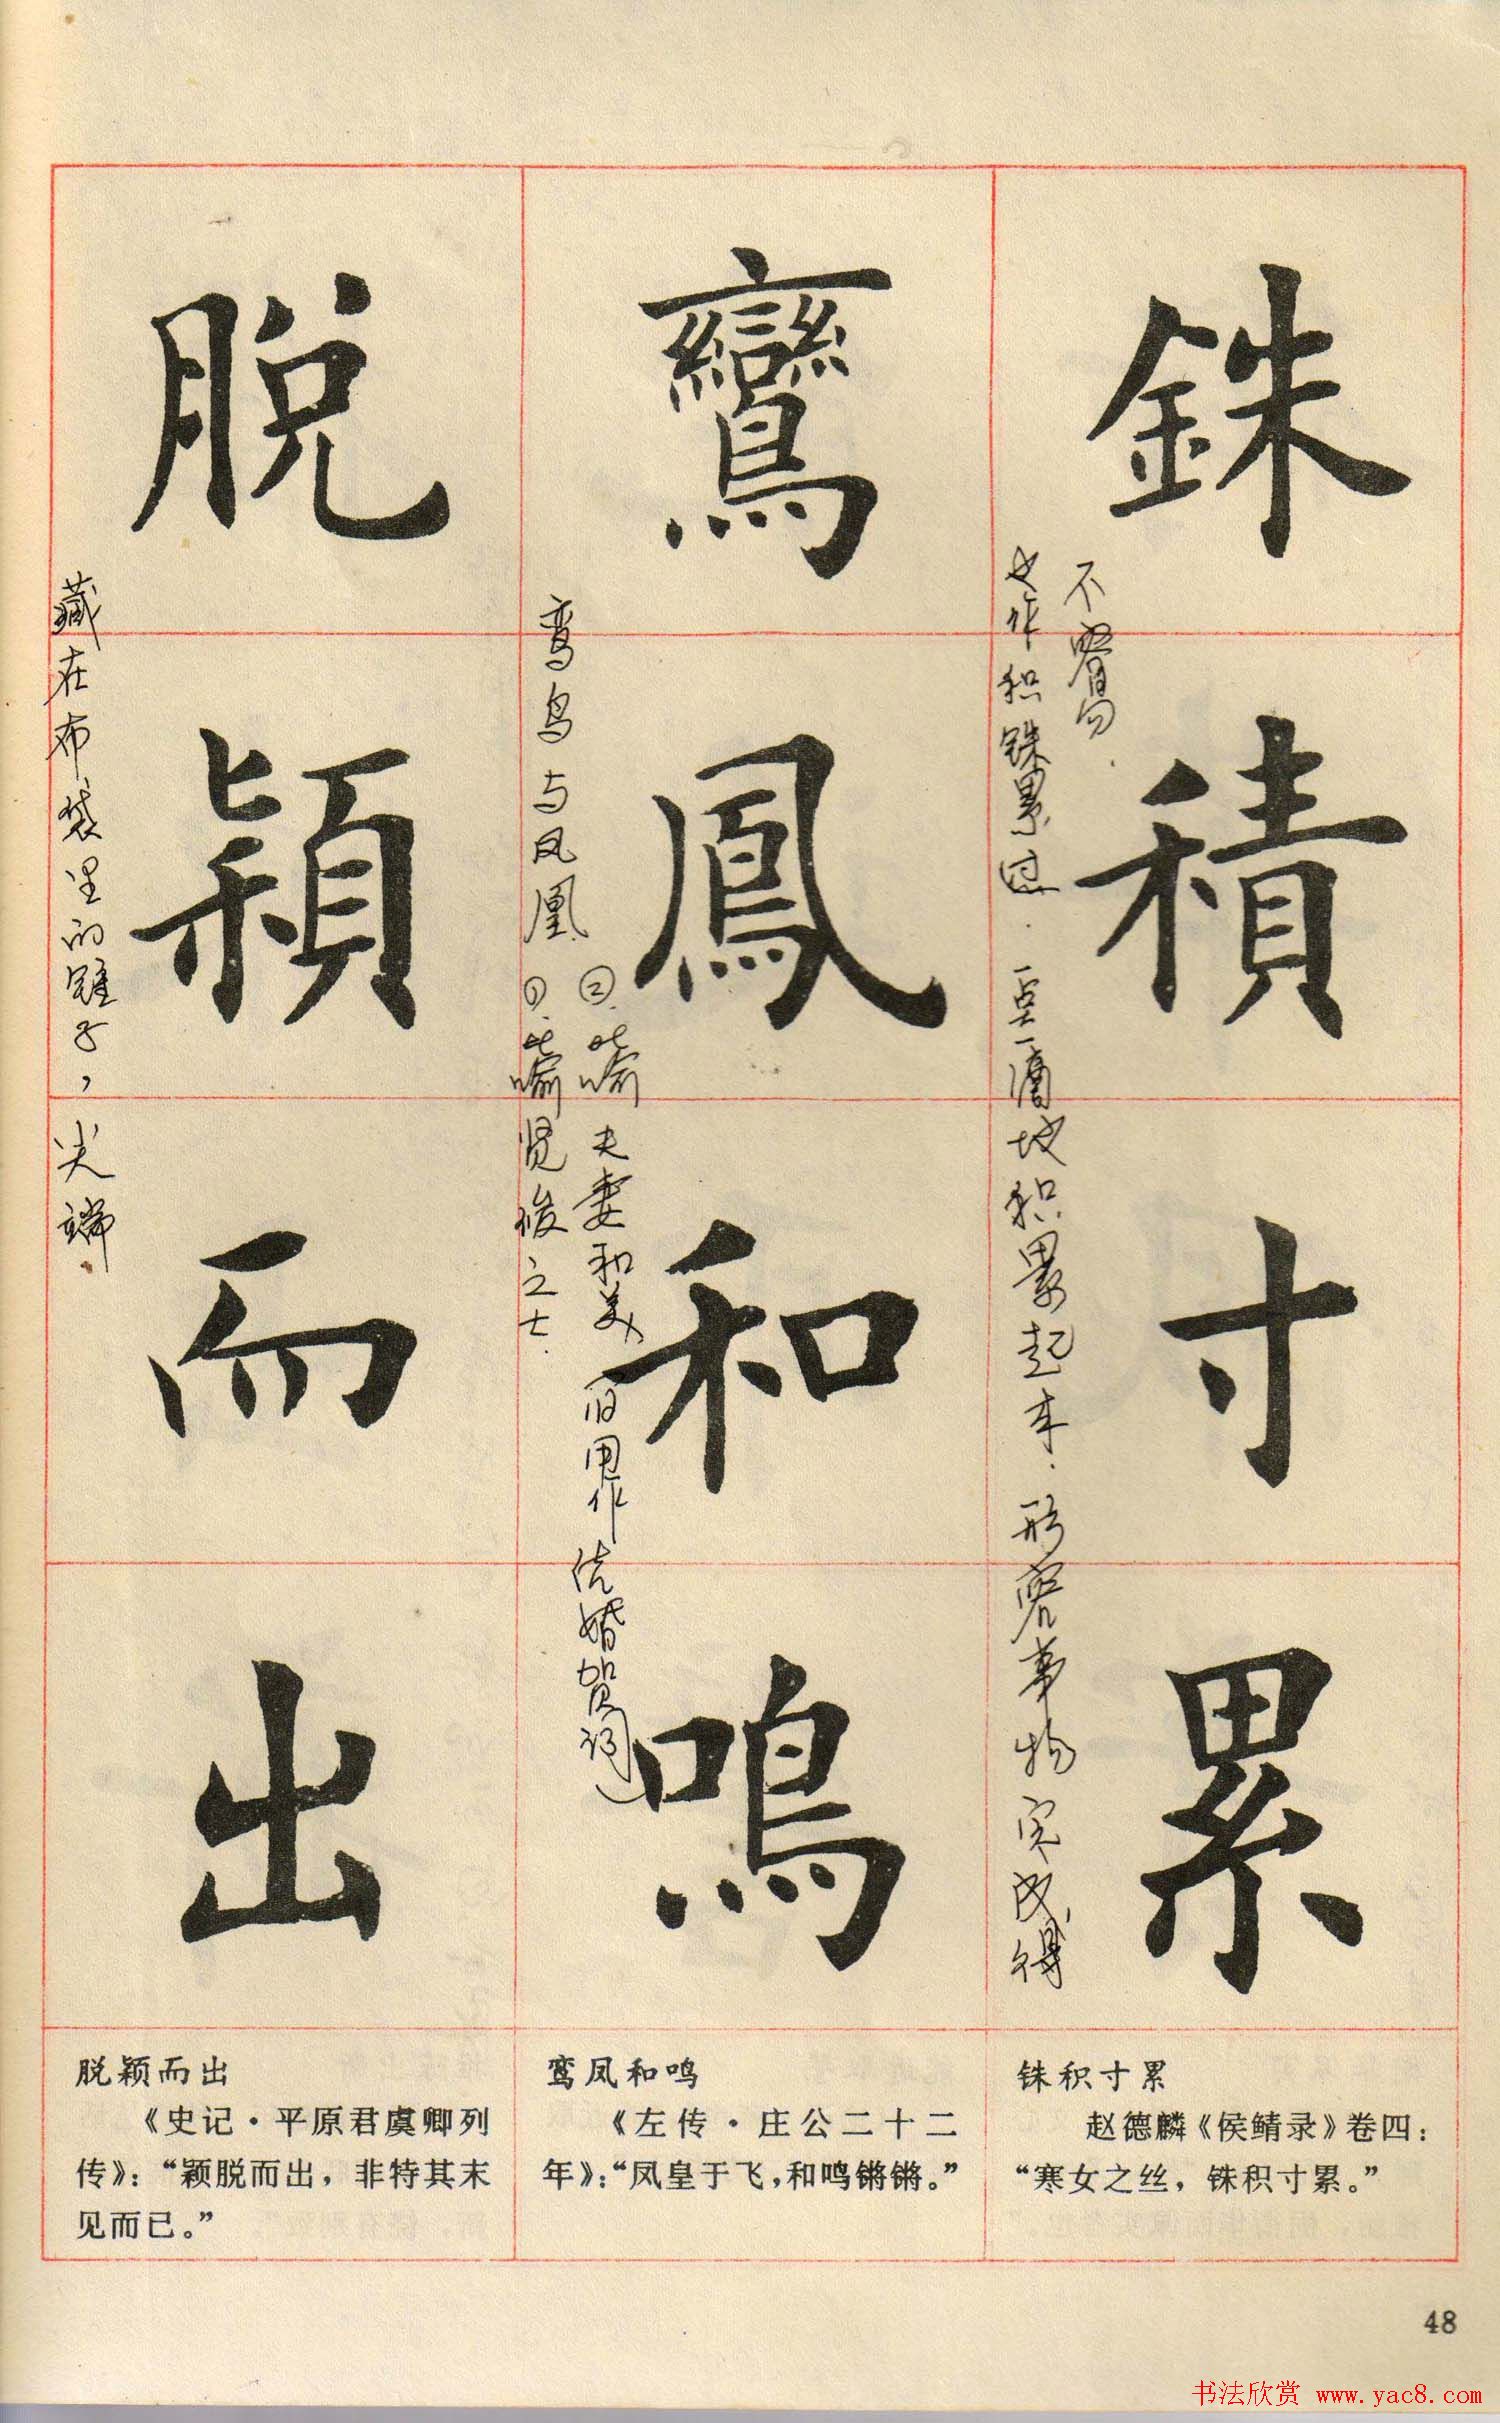 銖積寸累
也作积铢累寸.一点一滴地积累起来.形容事物完成得
不容易.
鸞鳳和鳴
鸾鸟与凤凰.①.比喻贤俊之士.
②.比喻夫妻和美(旧用作结婚贺词)
脱穎而出
藏在布袋里的锥子,尖端.
铢积寸累
赵德麟《侯鲭录》卷四:
“寒女之丝,铢积寸累。”
鸾凤和鸣
《左传·庄公二十二
年》:“凤皇于飞,和鸣锵锵。”
脱颖而出
《史记·平原君虞卿列
传》:“颖脱而出,非特其末
见而已。”
48
书法欣赏 www.yac8.com